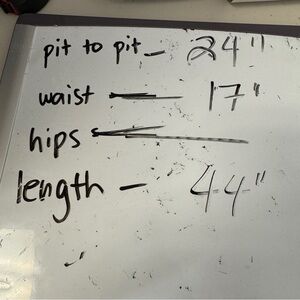 pit to pit - 24"
waist - 17"
hips -
length - 44"